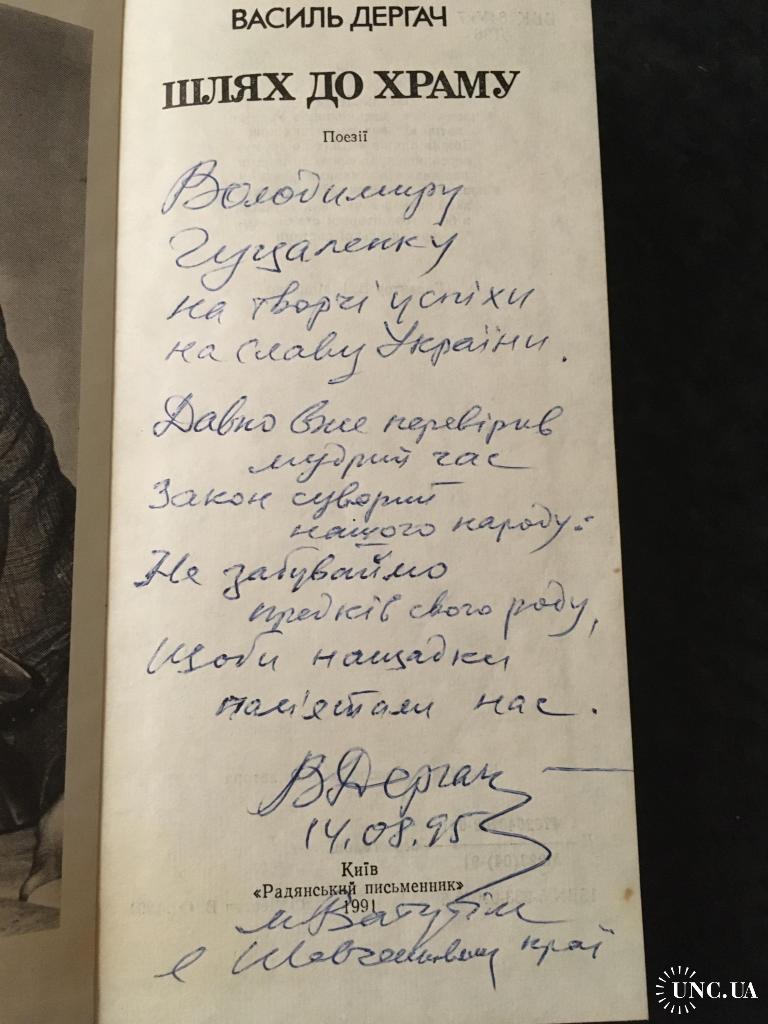 ВАСИЛЬ ДЕРГАЧ
ШЛЯХ ДО ХРАМУ
Поезії
Володимиру
Гуцаленку
на творчі успіхи
на славу України.
Давно вже перевірив
мудрий час
Закон суворий
нашого народу:
Не забуваймо
предків свого роду,
Щоби нащадки
пам'ятали нас.
ВДергач
14.08.95
Київ
«Радянський письменник»
1991
м Ватутіне
в Шевченковому краї
UNC.UA